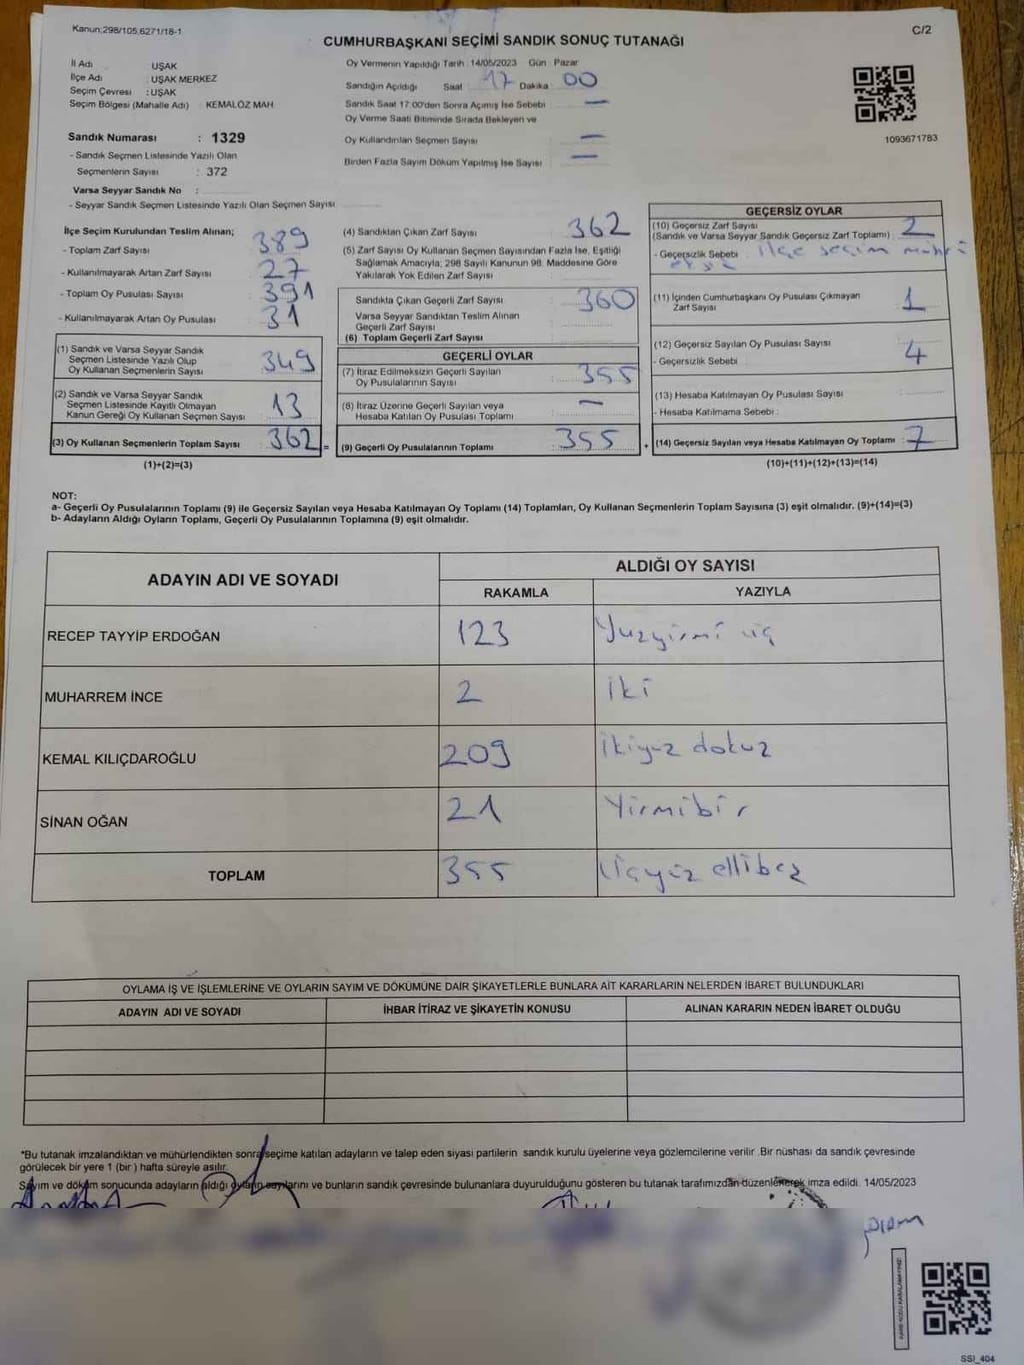 Kanun;298/105,6271/18-1
C/2
CUMHURBAŞKANI SEÇİMİ SANDIK SONUÇ TUTANAĞI
İl Adı UŞAK
İlçe Adı : UŞAK MERKEZ
Seçim Çevresi : UŞAK
Seçim Bölgesi (Mahalle Adı) : KEMALÖZ MAH.
Sandık Numarası : 1329
- Sandık Seçmen Listesinde Yazılı Olan
Seçmenlerin Sayısı : 372
Varsa Seyyar Sandık No :
- Seyyar Sandık Seçmen Listesinde Yazılı Olan Seçmen Sayısı
Oy Vermenin Yapıldığı Tarih : 14/05/2023 Gün : Pazar
Sandığın Açıldığı Saat 17 Dakika : 00
Sandık Saat 17:00'den Sonra Açımış İse Sebebi —
Oy Verme Saati Bitiminde Sırada Bekleyen ve
Oy Kullandırılan Seçmen Sayısı —
Birden Fazla Sayım Döküm Yapılmış İse Sayısı —
1093671783
İlçe Seçim Kurulundan Teslim Alınan;
- Toplam Zarf Sayısı 389
- Kullanılmayarak Artan Zarf Sayısı 27
- Toplam Oy Pusulası Sayısı 391
- Kullanılmayarak Artan Oy Pusulası 31
(1) Sandık ve Varsa Seyyar Sandık
Seçmen Listesinde Yazılı Olup
Oy Kullanan Seçmenlerin Sayısı 349
(2) Sandık ve Varsa Seyyar Sandık
Seçmen Listesinde Kayıtlı Olmayan
Kanun Gereği Oy Kullanan Seçmen Sayısı 13
(3) Oy Kullanan Seçmenlerin Toplam Sayısı 362 =
(1)+(2)=(3)
(4) Sandıktan Çıkan Zarf Sayısı 362
(5) Zarf Sayısı Oy Kullanan Seçmen Sayısından Fazla İse, Eşitliği
Sağlamak Amacıyla; 298 Sayılı Kanunun 98. Maddesine Göre
Yakılarak Yok Edilen Zarf Sayısı
Sandıkta Çıkan Geçerli Zarf Sayısı 360
Varsa Seyyar Sandıktan Teslim Alınan
Geçerli Zarf Sayısı
(6) Toplam Geçerli Zarf Sayısı
GEÇERLİ OYLAR
(7) İtiraz Edilmeksizin Geçerli Sayılan
Oy Pusulalarının Sayısı 355
(8) İtiraz Üzerine Geçerli Sayılan veya
Hesaba Katılan Oy Pusulası Toplamı —
(9) Geçerli Oy Pusulalarının Toplamı 355 +
GEÇERSİZ OYLAR
(10) Geçersiz Zarf Sayısı
(Sandık ve Varsa Seyyar Sandık Geçersiz Zarf Toplamı) : 2
- Geçersizlik Sebebi : ilçe seçim mührü
(11) İçinden Cumhurbaşkanı Oy Pusulası Çıkmayan
Zarf Sayısı 1
(12) Geçersiz Sayılan Oy Pusulası Sayısı 4
- Geçersizlik Sebebi
(13) Hesaba Katılmayan Oy Pusulası Sayısı
- Hesaba Katılmama Sebebi :
(14) Geçersiz Sayılan veya Hesaba Katılmayan Oy Toplamı : 7
(10)+(11)+(12)+(13)=(14)
NOT:
a- Geçerli Oy Pusulalarının Toplamı (9) ile Geçersiz Sayılan veya Hesaba Katılmayan Oy Toplamı (14) Toplamları, Oy Kullanan Seçmenlerin Toplam Sayısına (3) eşit olmalıdır. (9)+(14)=(3)
b- Adayların Aldığı Oyların Toplamı, Geçerli Oy Pusulalarının Toplamına (9) eşit olmalıdır.
ADAYIN ADI VE SOYADI
ALDIĞI OY SAYISI
RAKAMLA YAZIYLA
RECEP TAYYİP ERDOĞAN 123 Yüzyirmi üç
MUHARREM İNCE 2 iki
KEMAL KILIÇDAROĞLU 209 ikiyüz dokuz
SİNAN OĞAN 21 Yirmibir
TOPLAM 355 Üçyüz ellibeş
OYLAMA İŞ VE İŞLEMLERİNE VE OYLARIN SAYIM VE DÖKÜMÜNE DAİR ŞİKAYETLERLE BUNLARA AİT KARARLARIN NELERDEN İBARET BULUNDUKLARI
ADAYIN ADI VE SOYADI İHBAR İTİRAZ VE ŞİKAYETİN KONUSU ALINAN KARARIN NEDEN İBARET OLDUĞU
*Bu tutanak imzalandıktan ve mühürlendikten sonra seçime katılan adayların ve talep eden siyasi partilerin sandık kurulu üyelerine veya gözlemcilerine verilir. Bir nüshası da sandık çevresinde
görülecek bir yere 1 (bir ) hafta süreyle asılır.
Sayım ve döküm sonucunda adayların aldığı oyların sayılarını ve bunların sandık çevresinde bulunanlara duyurulduğunu gösteren bu tutanak tarafımızdan düzenlenerek imza edildi. 14/05/2023
SSI_404